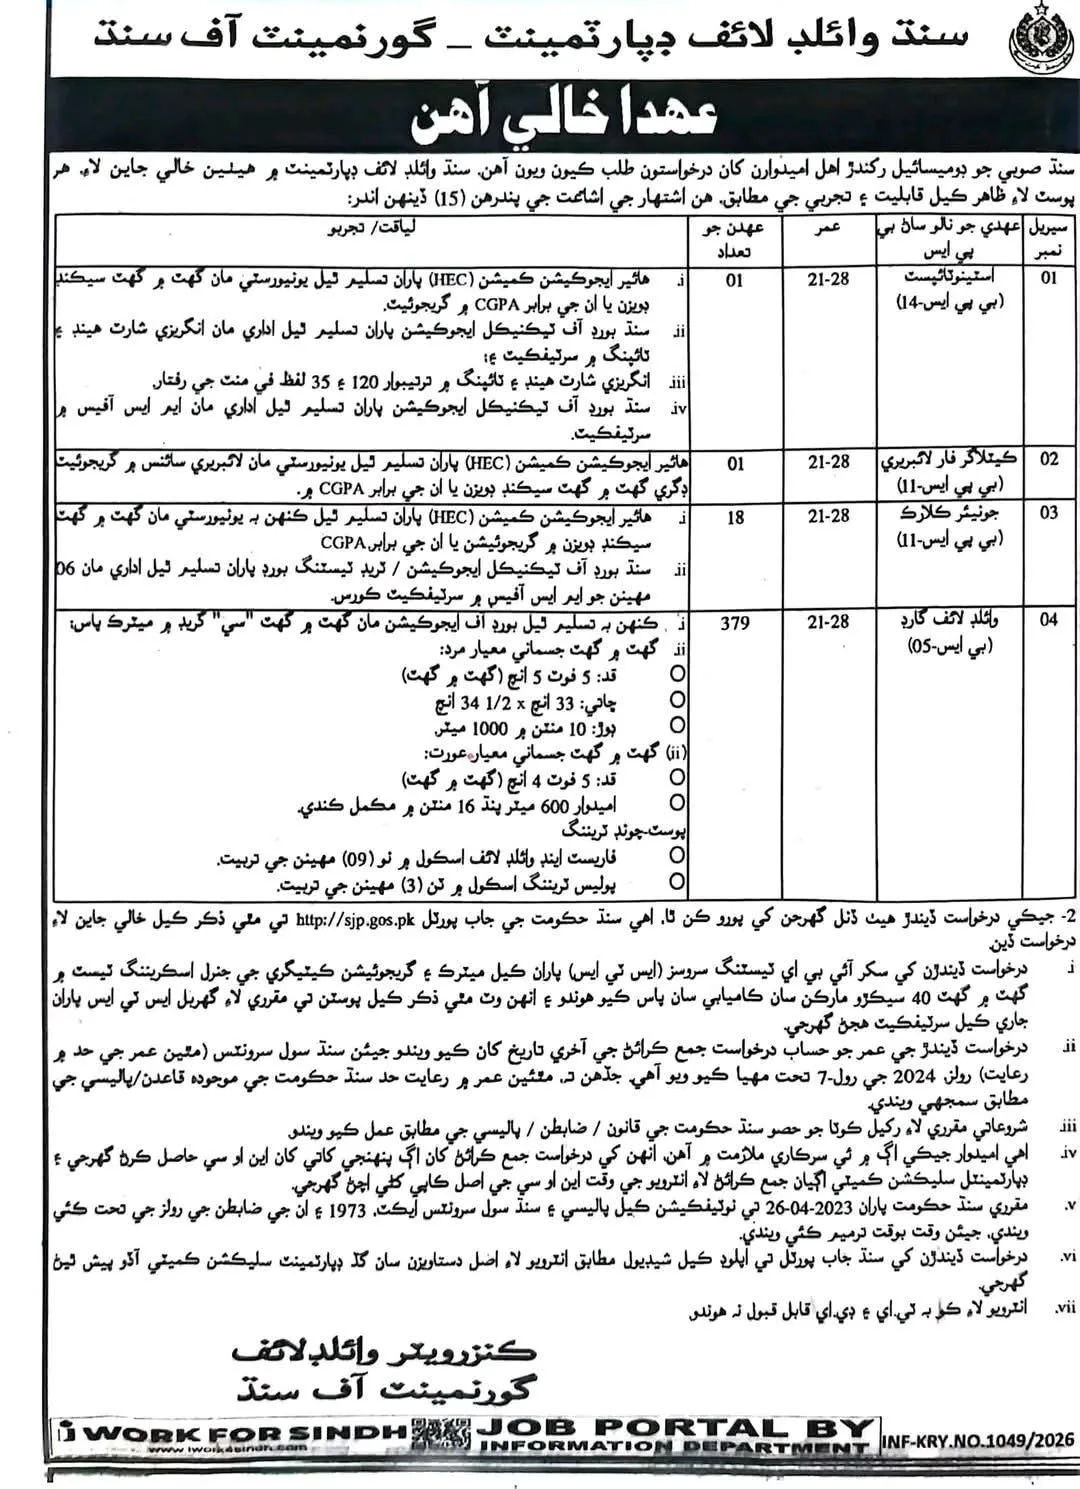 سنڌ وائلڊ لائف ڊپارٽمينٽ _ گورنمينٽ آف سنڌ
عهدا خالي آهن
سنڌ صوبي جو ڊوميسائيل رکندڙ اهل اميدوارن کان درخواستون طلب ڪيون ويون آهن. سنڌ وائلڊ لائف ڊپارٽمينٽ ۾ هيٺين خالي جاين لاءِ، هر
پوسٽ لاءِ ظاهر ڪيل قابليت ۽ تجربي جي مطابق. هن اشتهار جي اشاعت جي پندرهن (15) ڏينهن اندر:
سيريل نمبر
عهدي جو نالو ساڻ بي پي ايس
عمر
عهدن جو تعداد
لياقت/ تجربو
01
اسٽينوٽائپسٽ
(بي پي ايس-14)
21-28
01
i. هائير ايجوڪيشن ڪميشن (HEC) پاران تسليم ٿيل يونيورسٽي مان گهٽ ۾ گهٽ سيڪنڊ
ڊويزن يا ان جي برابر CGPA ۾ گريجوئيٽ.
ii. سنڌ بورڊ آف ٽيڪنيڪل ايجوڪيشن پاران تسليم ٿيل اداري مان انگريزي شارٽ هينڊ ۽
ٽائپنگ ۾ سرٽيفڪيٽ ۽؛
iii. انگريزي شارٽ هينڊ ۽ ٽائپنگ ۾ ترتيبوار 120 ۽ 35 لفظ في منٽ جي رفتار.
iv. سنڌ بورڊ آف ٽيڪنيڪل ايجوڪيشن پاران تسليم ٿيل اداري مان ايم ايس آفيس ۾
سرٽيفڪيٽ.
02
ڪيٽلاگر فار لائبريري
(بي پي ايس-11)
21-28
01
هائير ايجوڪيشن ڪميشن (HEC) پاران تسليم ٿيل يونيورسٽي مان لائبريري سائنس ۾ گريجوئيٽ
ڊگري گهٽ ۾ گهٽ سيڪنڊ ڊويزن يا ان جي برابر CGPA ۾.
03
جونيئر ڪلارڪ
(بي پي ايس-11)
21-28
18
i. هائير ايجوڪيشن ڪميشن (HEC) پاران تسليم ٿيل ڪنهن به يونيورسٽي مان گهٽ ۾ گهٽ
سيڪنڊ ڊويزن ۾ گريجوئيشن يا ان جي برابر.CGPA
ii. سنڌ بورڊ آف ٽيڪنيڪل ايجوڪيشن / ٽريڊ ٽيسٽنگ بورڊ پاران تسليم ٿيل اداري مان 06
مهينن جو ايم ايس آفيس ۾ سرٽيفڪيٽ ڪورس.
04
وائلڊ لائف گارڊ
(بي ايس-05)
21-28
379
i. ڪنهن به تسليم ٿيل بورڊ آف ايجوڪيشن مان گهٽ ۾ گهٽ "سي" گريڊ ۾ ميٽرڪ پاس:
ii. گهٽ ۾ گهٽ جسماني معيار مرد:
O قد: 5 فوٽ 5 انچ (گهٽ ۾ گهٽ)
O ڇاتي: 33 انچ x 34 1/2 انچ
O ڊوڙ: 10 منٽن ۾ 1000 ميٽر.
(ii) گهٽ ۾ گهٽ جسماني معيار عورت:
O قد: 5 فوٽ 4 انچ (گهٽ ۾ گهٽ)
O اميدوار 600 ميٽر پنڌ 16 منٽن ۾ مڪمل ڪندي.
پوسٽ-چونڊ ٽريننگ
O فاريسٽ اينڊ وائلڊ لائف اسڪول ۾ نو (09) مهينن جي تربيت.
O پوليس ٽريننگ اسڪول ۾ ٽن (3) مهينن جي تربيت.
2- جيڪي درخواست ڏيندڙ هيٺ ڏنل گهرجن کي پورو ڪن ٿا، اهي سنڌ حڪومت جي جاب پورٽل http://sjp.gos.pk تي مٿي ذڪر ڪيل خالي جاين لاءِ
درخواست ڏين.
i. درخواست ڏيندڙن کي سکر آئي بي اي ٽيسٽنگ سروسز (ايس ٽي ايس) پاران ڪيل ميٽرڪ ۽ گريجوئيشن ڪيٽيگري جي جنرل اسڪريننگ ٽيسٽ ۾
گهٽ ۾ گهٽ 40 سيڪڙو مارڪن سان ڪاميابي سان پاس ڪيو هوندو ۽ انهن وٽ مٿي ذڪر ڪيل پوسٽن تي مقرري لاءِ گهربل ايس ٽي ايس پاران
جاري ڪيل سرٽيفڪيٽ هجڻ گهرجي.
ii. درخواست ڏيندڙ جي عمر جو حساب درخواست جمع ڪرائڻ جي آخري تاريخ کان ڪيو ويندو جيئن سنڌ سول سرونٽس (مٿين عمر جي حد ۾
رعايت) رولز، 2024 جي رول-7 تحت مهيا ڪيو ويو آهي. جڏهن ته، مٿئين عمر ۾ رعايت حد سنڌ حڪومت جي موجوده قاعدن/پاليسي جي
مطابق سمجهي ويندي.
iii. شروعاتي مقرري لاءِ رکيل ڪوٽا جو حصو سنڌ حڪومت جي قانون / ضابطن / پاليسي جي مطابق عمل ڪيو ويندو.
iv. اهي اميدوار جيڪي اڳ ۾ ئي سرڪاري ملازمت ۾ آهن، انهن کي درخواست جمع ڪرائڻ کان اڳ پنهنجي کاتي کان اين او سي حاصل ڪرڻ گهرجي ۽
ڊپارٽمينٽل سليڪشن ڪميٽي اڳيان جمع ڪرائڻ لاءِ انٽرويو جي وقت اين او سي جي اصل ڪاپي کڻي اچڻ گهرجي.
v. مقرري سنڌ حڪومت پاران 26-04-2023 تي نوٽيفڪيشن ڪيل پاليسي ۽ سنڌ سول سرونٽس ايڪٽ، 1973 ۽ ان جي ضابطن جي رولز جي تحت ڪئي
ويندي، جيئن وقت بوقت ترميم ڪئي ويندي.
vi. درخواست ڏيندڙن کي سنڌ جاب پورٽل تي اپلوڊ ڪيل شيڊيول مطابق انٽرويو لاءِ اصل دستاويزن سان گڏ ڊپارٽمينٽ سليڪشن ڪميٽي آڏو پيش ٿيڻ
گهرجي.
vii. انٽرويو لاءِ ڪو به ٽي.اي ۽ ڊي.اي قابل قبول نه هوندو.
ڪنزرويٽر وائلڊ لائف
گورنمينٽ آف سنڌ
i WORK FOR SINDH
www.iwork4sindh.com
JOB PORTAL BY
INFORMATION DEPARTMENT
INF-KRY.NO.1049/2026